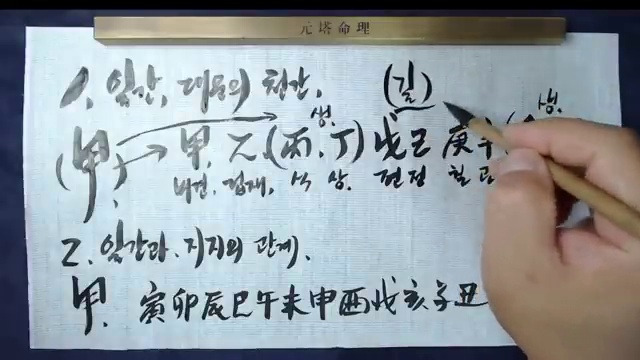 元塔命理
1. 일간, 대운의 천간,
(길)
생, 생,
(甲) 甲, 乙, (丙, 丁) 戊己 庚辛
비견. 겁재, 식 상. 편정 칠
2. 일간과. 지지의 관계.
甲. 寅卯辰巳午未申酉戌亥子丑